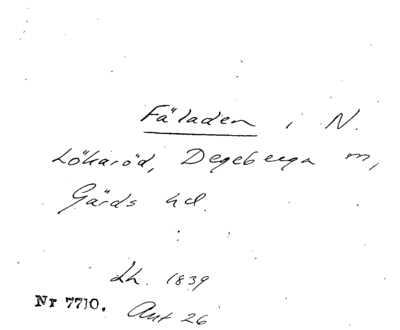 Fäladen i N.
Lökaröd, Degeberga m,
Gärds hd.
Lh. 1839
Nr 7710. Ant 26